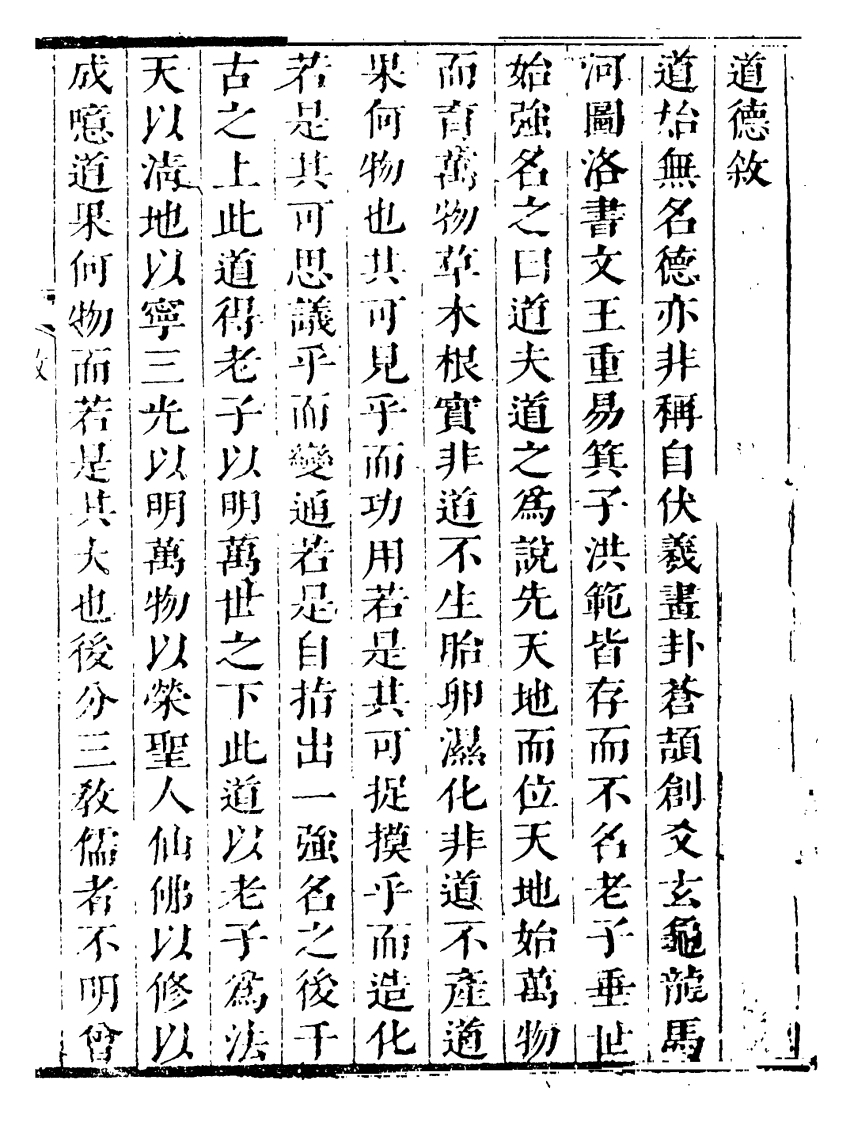 道德敘
道始無名德亦非稱自伏羲畫卦蒼頡創爻玄龜龍馬
河圖洛書文王重易箕子洪範皆存而不名老子垂世
始強名之曰道夫道之為說先天地而位天地始萬物
而育萬物草木根實非道不生胎卵濕化非道不產道
果何物也其可見乎而功用若是其可捉摸乎而造化
若是其可思議乎而變通若是自拈出一強名之後千
古之上此道得老子以明萬世之下此道以老子為法
天以清地以寧三光以明萬物以榮聖人仙佛以修以
成噫道果何物而若是其大也後分三教儒者不明曾
敘